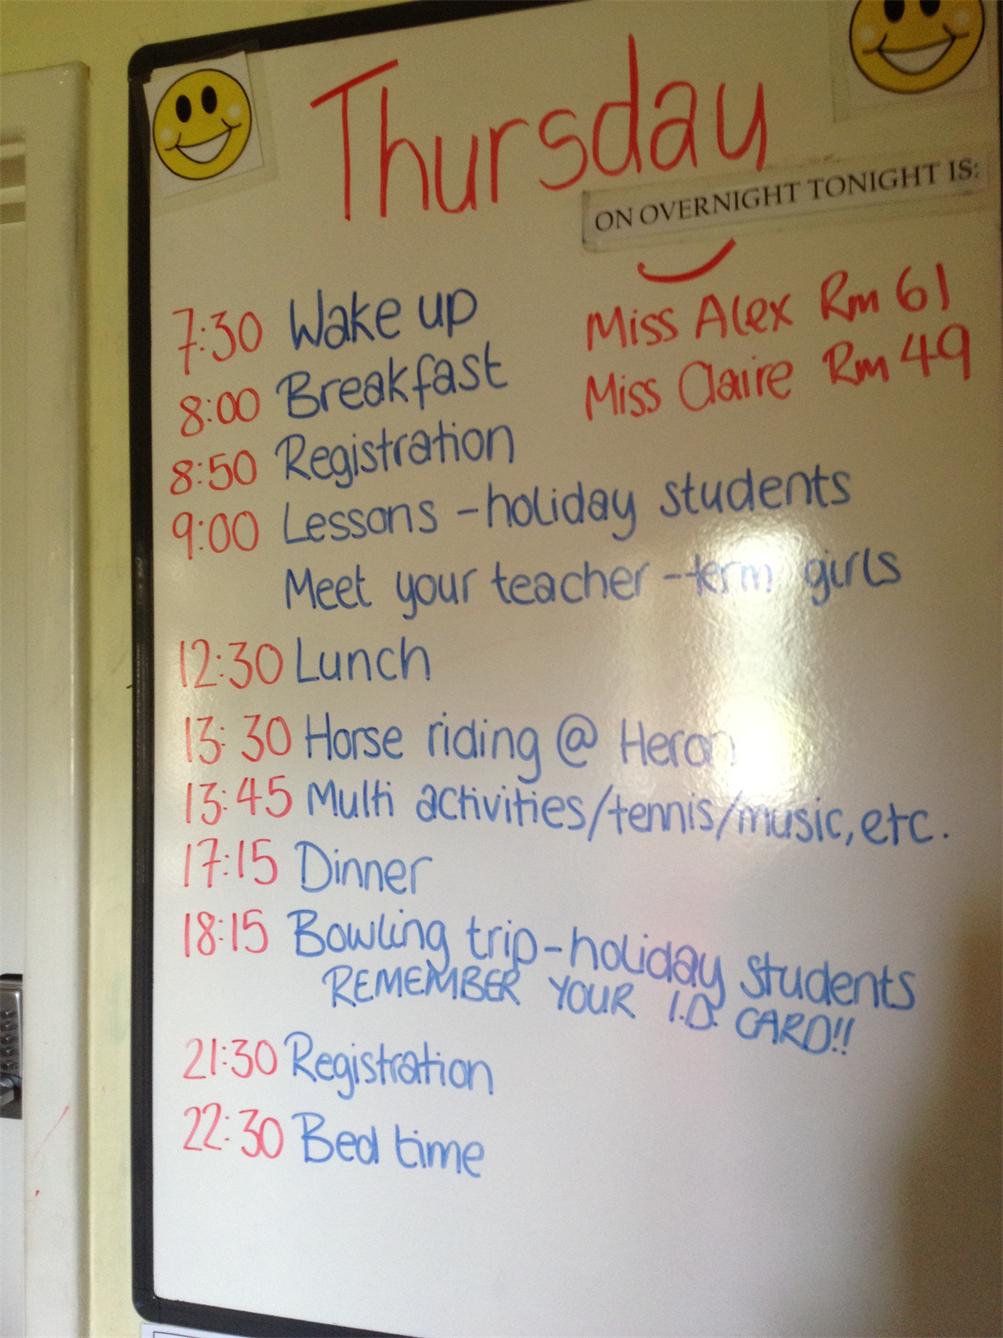 Thursday
ON OVERNIGHT TONIGHT IS:
Miss Alex Rm 61
Miss Claire Rm 49
7:30 Wake up
8:00 Breakfast
8:50 Registration
9:00 Lessons - holiday students
Meet your teacher - term girls
12:30 Lunch
13:30 Horse riding @ Heron
13:45 Multi activities/tennis/music, etc.
17:15 Dinner
18:15 Bowling trip - holiday students
REMEMBER YOUR I.D. CARD!!
21:30 Registration
22:30 Bed time